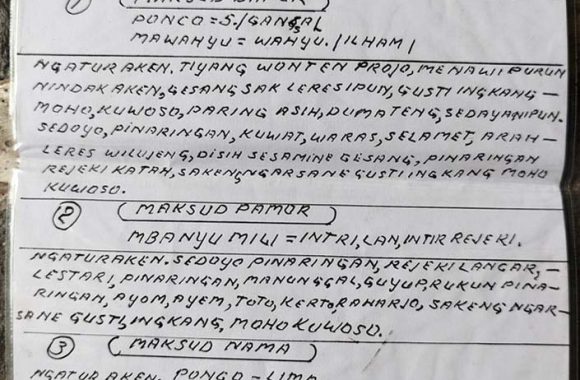 ① (MAKSUD DAPUR)
PONCO = 5./GANGSAL
MAWAHYU = WAHYU./ILHAM/
NGATURAKEN. TIYANG WONTEN PROJO, MENAWII PURUN
NINDAKAKEN, GESANG SAK LERESIPUN, GUSTI INGKANG -
MOHO, KUWOSO, PARING ASIH, DUMATENG, SEDAYANIPUN.
SEDOYO, PINARINGAN, KUWAT, WARAS, SELAMET, ARAH -
LERES WILUJENG, DISIH SESAMINE GESANG, PINARINGAN
REJEKI KATAH, SAKENG, NGARSANE GUSTI INGKANG MOHO
KUWOSO.
② (MAKSUD PAMOR)
MBANYU MILI = INTRI, LAN, INTIR REJEKI.
NGATURAKEN. SEDOYO PINARINGAN, REJEKI LANGAR, -
LESTARI, PINARINGAN, MANUNGGAL, GUYUP, RUKUN PINA-
RINGAN, AYOM, AYEM, TOTO, KERTO, RAHARJO, SAKENG NGAR-
SANE GUSTI, INGKANG, MOHO KUWOSO.
③ (MAKSUD NAMA)
NGATURAKEN. PONCO = LIMO